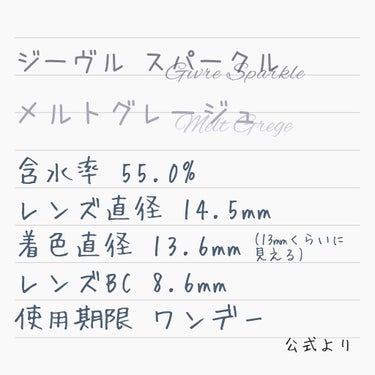 ジーヴル スパークル
Givre Sparkle
メルトグレージュ
Melt Grege
含水率 55.0%
レンズ直径 14.5mm
着色直径 13.6mm (13mmくらいに
見える)
レンズBC 8.6mm
使用期限 ワンデー
公式より